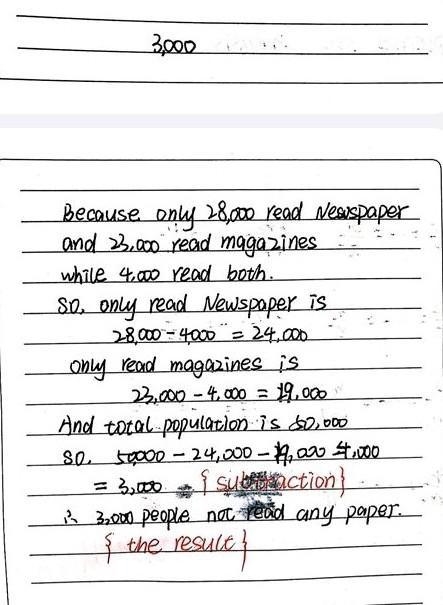 3,000
Because only 28,000 read Newspaper
and 23,000 read magazines
while 4,000 read both.
So, only read Newspaper is
28,000 - 4000 = 24,000
only read magazines is
23,000 - 4,000 = 19,000
And total population is 50,000
So. 50000 - 24,000 - 19,000 - 4,000
= 3,000 = { subtraction }
∴ 3,000 people not read any paper.
{ the result }